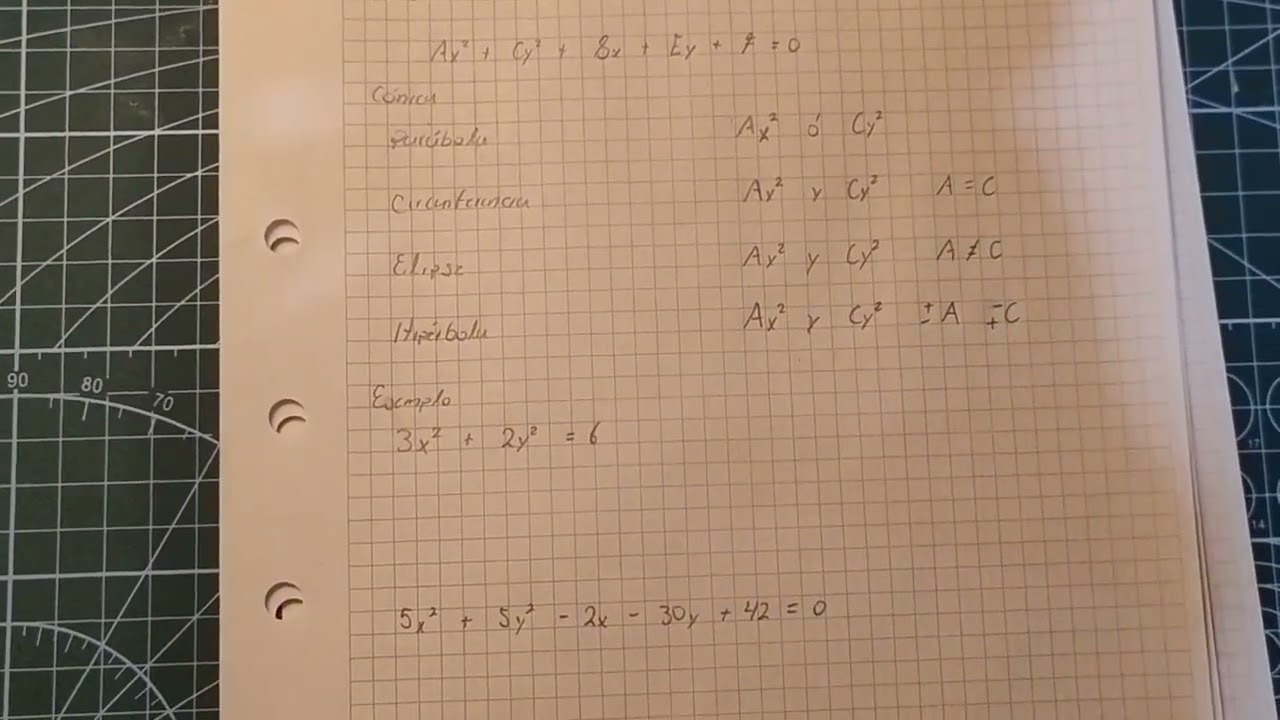 Ax² + Cy² + Dx + Ey + F = 0
Cónica
Parábola Ax² ó Cy²
Circunferencia Ax² y Cy² A = C
Elipse Ax² y Cy² A ≠ C
Hipérbola Ax² y Cy² ±A ∓C
Ejemplo
3x² + 2y² = 6
5x² + 5y² - 2x - 30y + 42 = 0
90 80 70
17
14